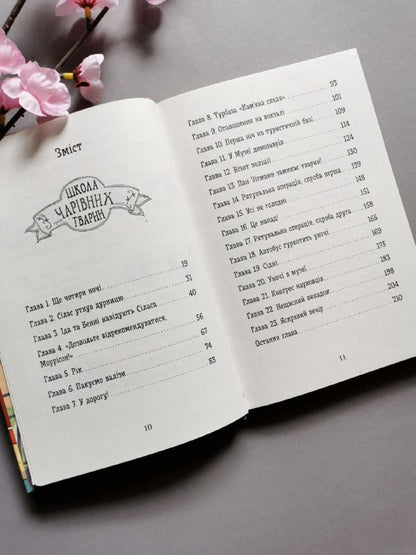 Зміст
ШКОЛА
ЧАРІВНИХ
ТВАРИН
Глава 1. Ще чотири ночі 19
Глава 2. Сілас утнув дурницю 31
Глава 3. Іда та Бенні навідують Сіласа 40
Глава 4. «Дозвольте відрекомендуватися,
Моррісон!» 56
Глава 5. Рік 67
Глава 6. Пакуємо валізи 74
Глава 7. У дорогу! 83
10
Глава 8. Турбаза «Кам'яна скеля» 93
Глава 9. Оголошення на вокзалі 101
Глава 10. Перша ніч на туристичній базі 109
Глава 11. У Музеї динозаврів 114
Глава 12. Візит поліції 124
Глава 13. Пан Зігманн замкнув тварин!
Глава 14. Рятувальна операція, спроба перша 138
Глава 15. Усі не голодні
Глава 16. Це напад! 151
Глава 17. Рятувальна операція, спроба друга
Глава 18. Автобус гуркотить уночі 165
Глава 19. Сідні
Глава 20. Уночі в музеї
Глава 21. Конгрес науковців
Глава 22. Нещасний випадок 198
Глава 23. Яскравий вечір 204
Остання глава 210
11